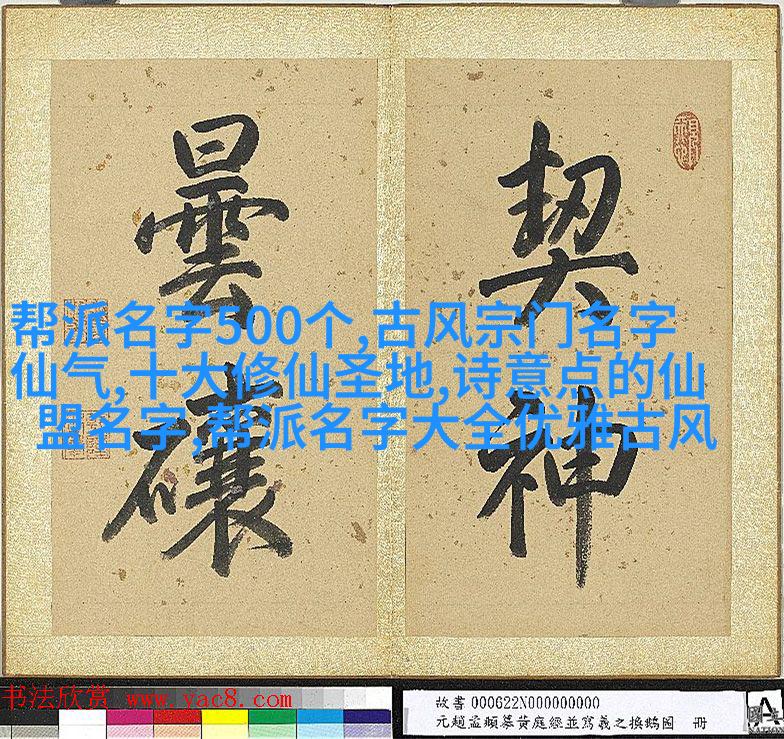 契神
曇
帮派名字500个,古风宗门名字
仙气,十大修仙圣地,诗意点的仙
盟名字,帮派名字大全优雅古风
书法欣赏 www.yac8.com
故書000622N000000000
元趙孟頫摹黃庭經並寫羲之換鵝圖 冊